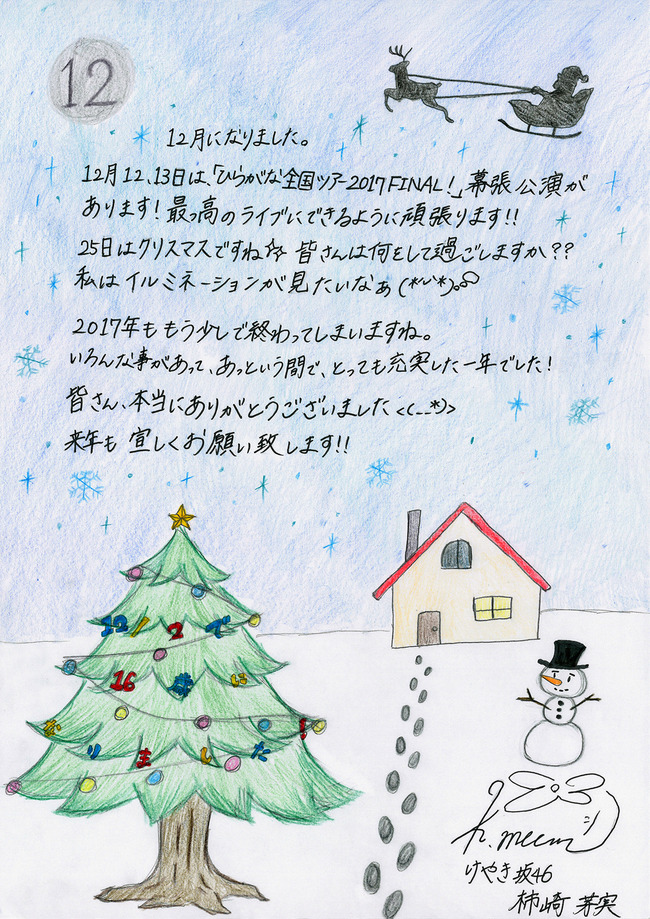 12
12月になりました。
12月12、13日は、「ひらがな全国ツアー2017FINAL!」幕張公演が
あります!最っ高のライブにできるように頑張ります!!
25日はクリスマスですね☆ 皆さんは何をして過ごしますか??
私はイルミネーションが見たいなぁ(*'~'*)。
2017年ももう少しで終わってしまいますね。
いろんな事があって、あっという間で、とっても充実した一年でした!
皆さん、本当にありがとうございました<(_ _*)>
来年も宜しくお願い致します!!
12/2で
16歳に
なりました!
h.meem
けやき坂46
柿崎 芽実